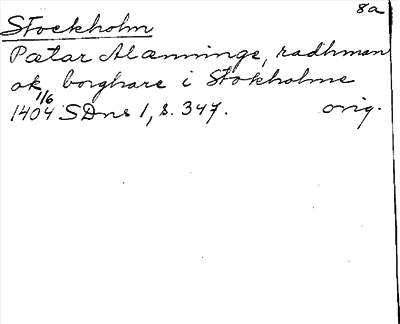 8a
Stockholm
Pætar Alænninge, radhman
ok borghare i Stokholme
1/6
1404 SDns 1, s. 347. orig.